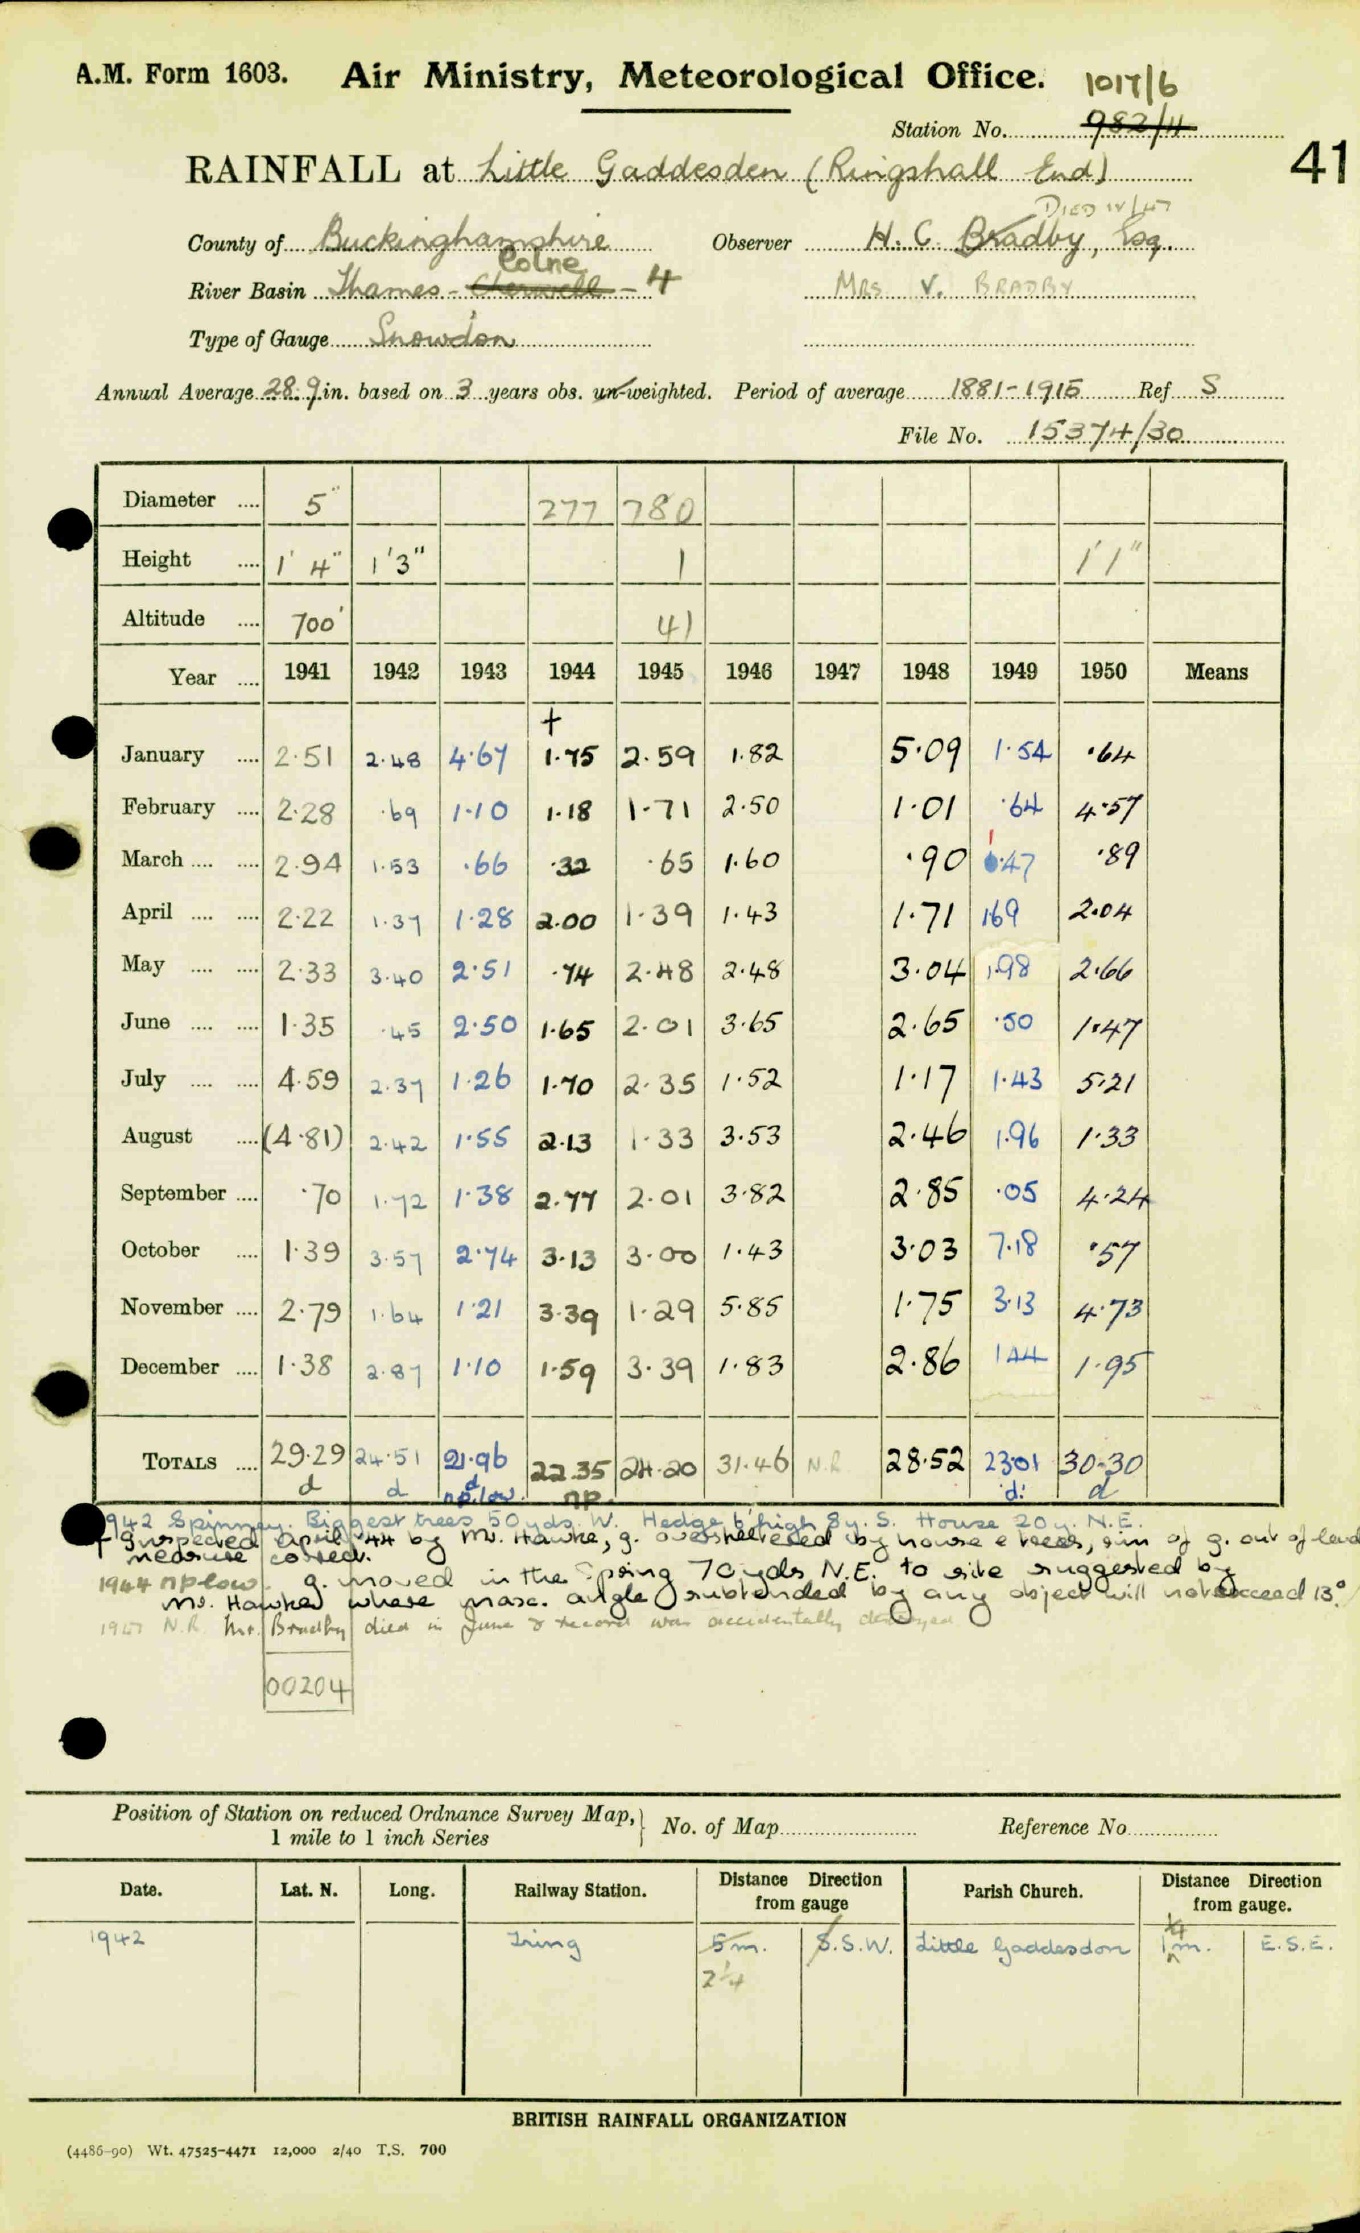 A.M. Form 1603. Air Ministry, Meteorological Office. 1017/6
Station No. 982/4
41
RAINFALL at Little Gaddesden (Ringshall End)
DIED IV/47
County of Buckinghamshire Observer H. C. Bradby, Esq.
Colne
River Basin Thames - Cherwell - 4 MRS V. BRADBY
Type of Gauge Snowdon
Annual Average 28.9 in. based on 3 years obs. un-weighted. Period of average 1881-1915 Ref S
File No. 15374/30
Diameter .... 5" 277 780
Height .... 1' 4" 1'3" 1 1'1"
Altitude .... 700' 41
Year .... 1941 1942 1943 1944 1945 1946 1947 1948 1949 1950 Means
+
January .... 2.51 2.48 4.67 1.75 2.59 1.82 5.09 1.54 .64
February .... 2.28 .69 1.10 1.18 1.71 2.50 1.01 .64 4.57
March .... .... 2.94 1.53 .66 .32 .65 1.60 .90 1.47 .89
April .... .... 2.22 1.37 1.28 2.00 1.39 1.43 1.71 1.69 2.04
May .... .... 2.33 3.40 2.51 .74 2.48 2.48 3.04 1.98 2.66
June .... .... 1.35 .45 2.50 1.65 2.01 3.65 2.65 .50 1.47
July .... .... 4.59 2.37 1.26 1.70 2.35 1.52 1.17 1.43 5.21
August .... (4.81) 2.42 1.55 2.13 1.33 3.53 2.46 1.96 1.33
September .... .70 1.72 1.38 2.77 2.01 3.82 2.85 .05 4.24
October .... 1.39 3.57 2.74 3.13 3.00 1.43 3.03 7.18 .57
November .... 2.79 1.64 1.21 3.39 1.29 5.85 1.75 3.13 4.73
December .... 1.38 2.87 1.10 1.59 3.39 1.83 2.86 1.44 1.95
TOTALS .... 29.29 24.51 21.96 22.35 24.20 31.46 N.R. 28.52 23.01 30.30
d d d n.p. low. n.p. d. d
1942 Spinney. Biggest trees 50 yds. W. Hedge 6' high 8 y. S. House 20 y. N.E.
+ Inspected April '44 by Mr. Hawke, g. oversheltered by house & trees, rim of g. out of level
measure correct.
1944 n p low. g. moved in the Spring 70 yds N.E. to site suggested by
Mr. Hawke where max. angle subtended by any object will not exceed 13°
1947 N.R. Mr. Bradby died in June & record was accidentally destroyed
00204
Position of Station on reduced Ordnance Survey Map, 1 mile to 1 inch Series } No. of Map Reference No.
Date. Lat. N. Long. Railway Station. Distance Direction from gauge Parish Church. Distance Direction from gauge.
1942 Tring 5 m. S.S.W. Little Gaddesdon 1 1/4 m. E.S.E.
2 1/4
BRITISH RAINFALL ORGANIZATION
(4486-90) Wt. 47525-4471 12,000 2/40 T.S. 700